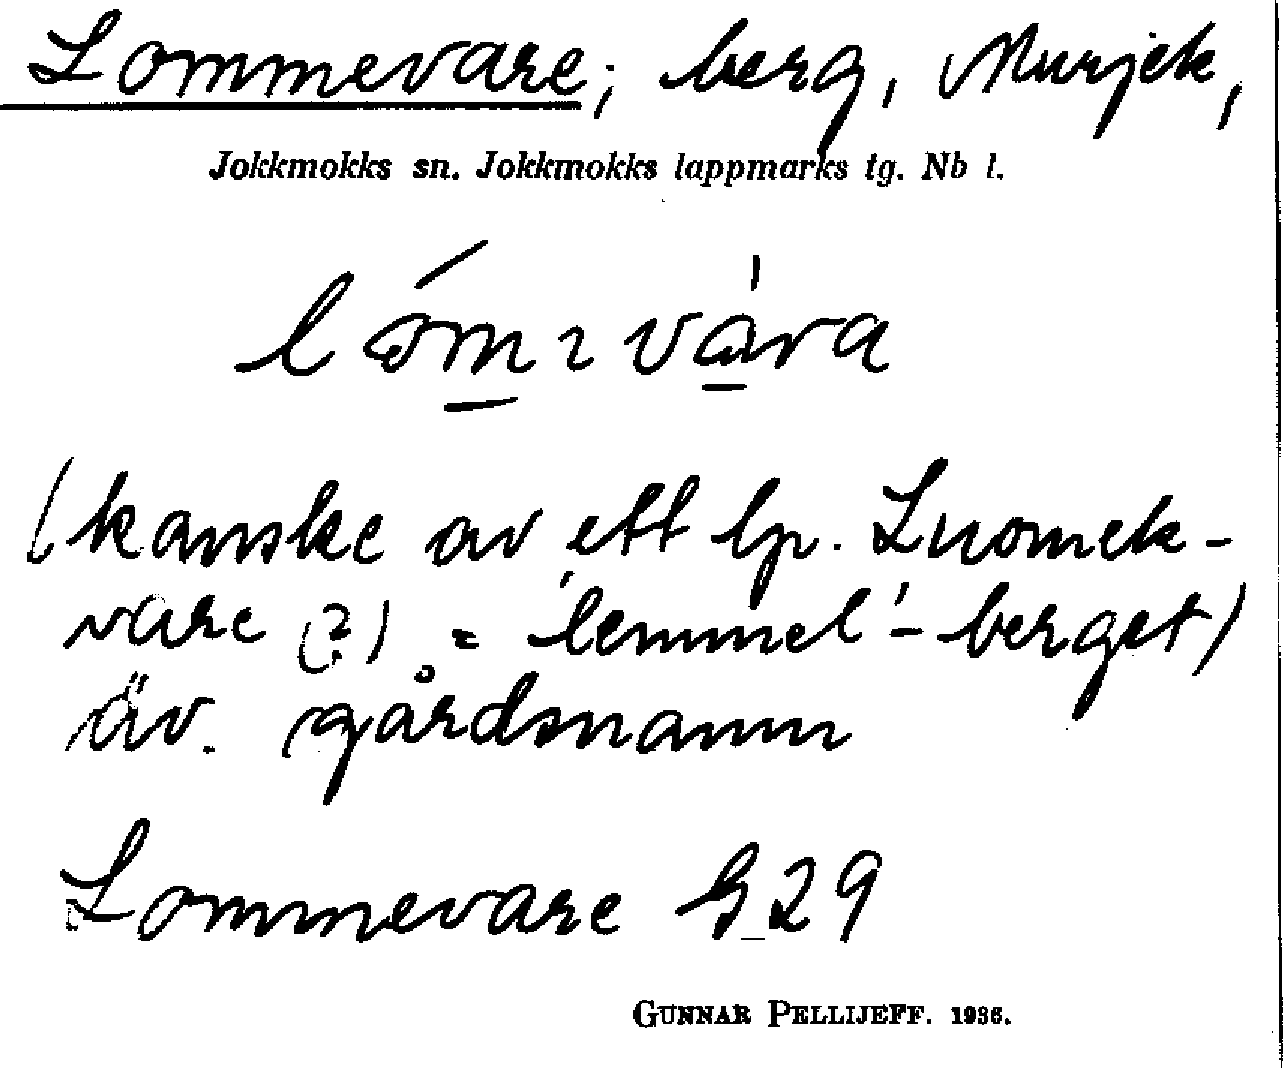 Lommevare; berg, Murjek,
Jokkmokks sn. Jokkmokks lappmarks tg. Nb l.
(kanske av ett lp. Luomek-
vare (?) = 'lemmel'-berget)
äv. gårdsnamn
Lommevare G 29
GUNNAR PELLIJEFF. 1936.